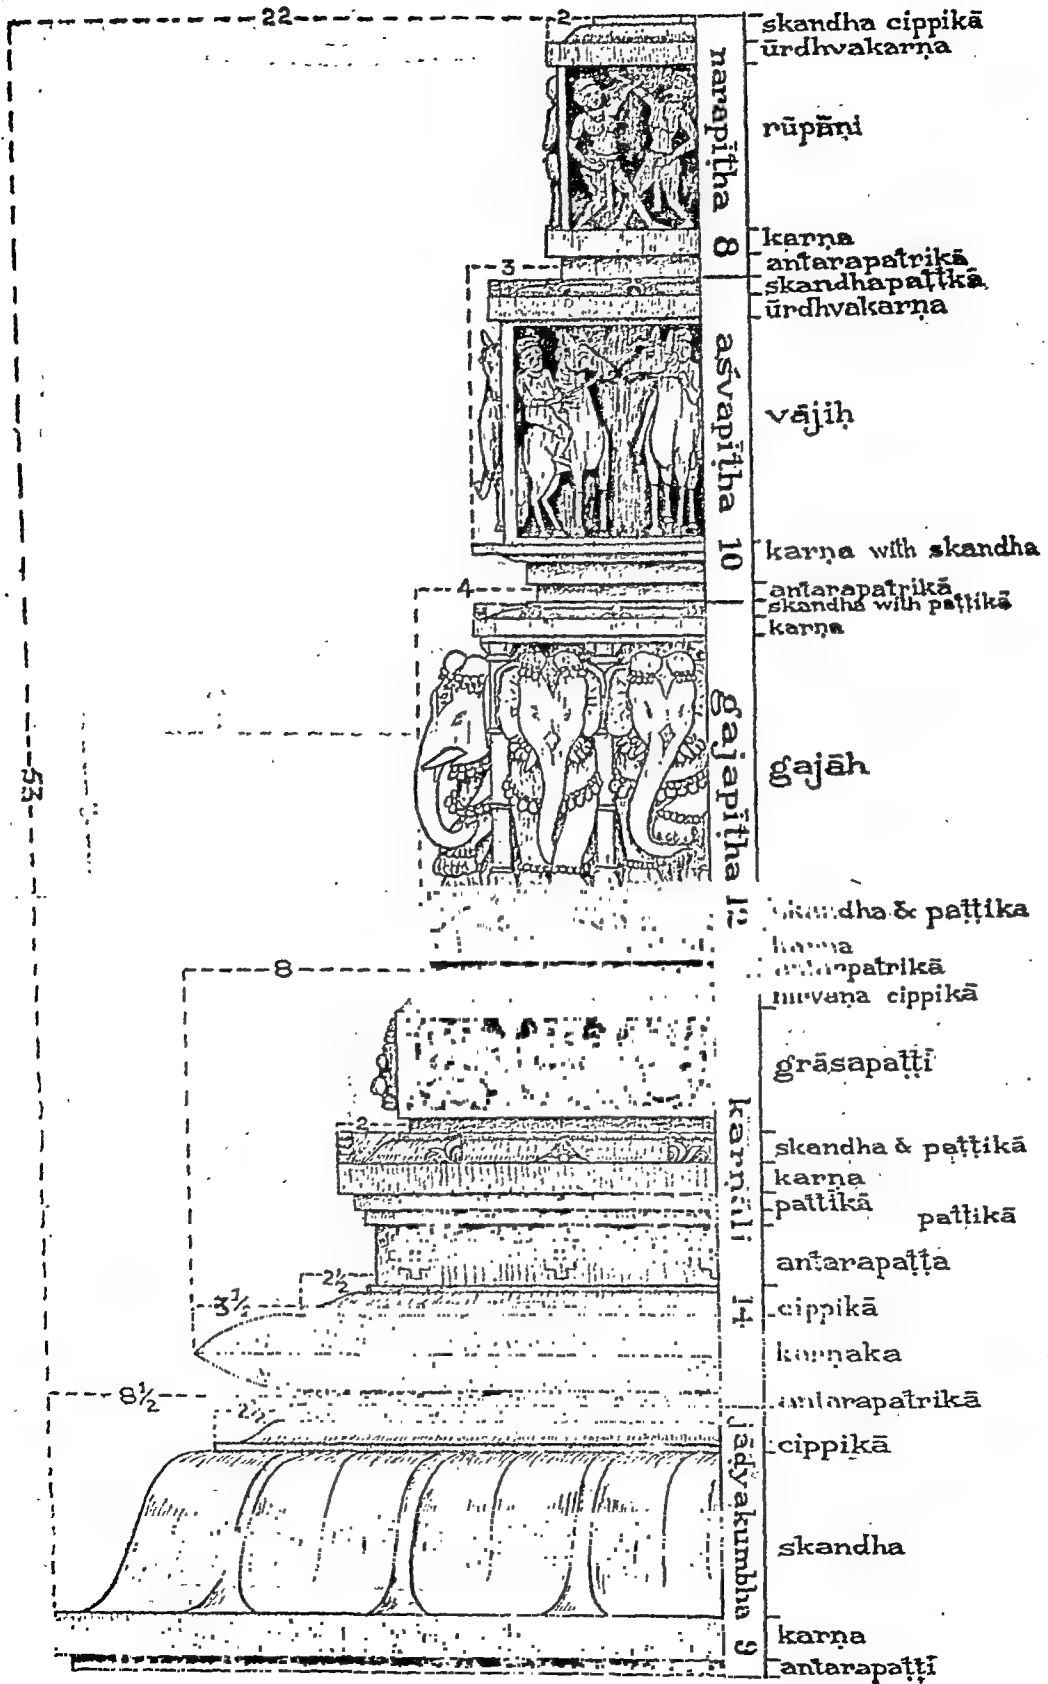 22
2
skandha cippikā
ūrdhvakarṇa
narapīṭha 8
rūpāṇi
karṇa
antarapatrikā
3
skandhapaṭṭikā
ūrdhvakarṇa
aśvapīṭha 10
vājiḥ
karṇa with skandha
antarapatrikā
4
skandha with paṭṭikā
karṇa
gajapīṭha 12
gajāh
53
skandha & paṭṭika
karṇa
antarapatrikā
8
cippikā
grāsapaṭṭī
karṇāli 14
2
skandha & paṭṭikā
karṇa
paṭṭikā
paṭṭikā
antarapaṭṭa
2½
3½
cippikā
karṇaka
8½
antarapatrikā
jāḍyakumbha 9
cippikā
skandha
karṇa
antarapaṭṭī